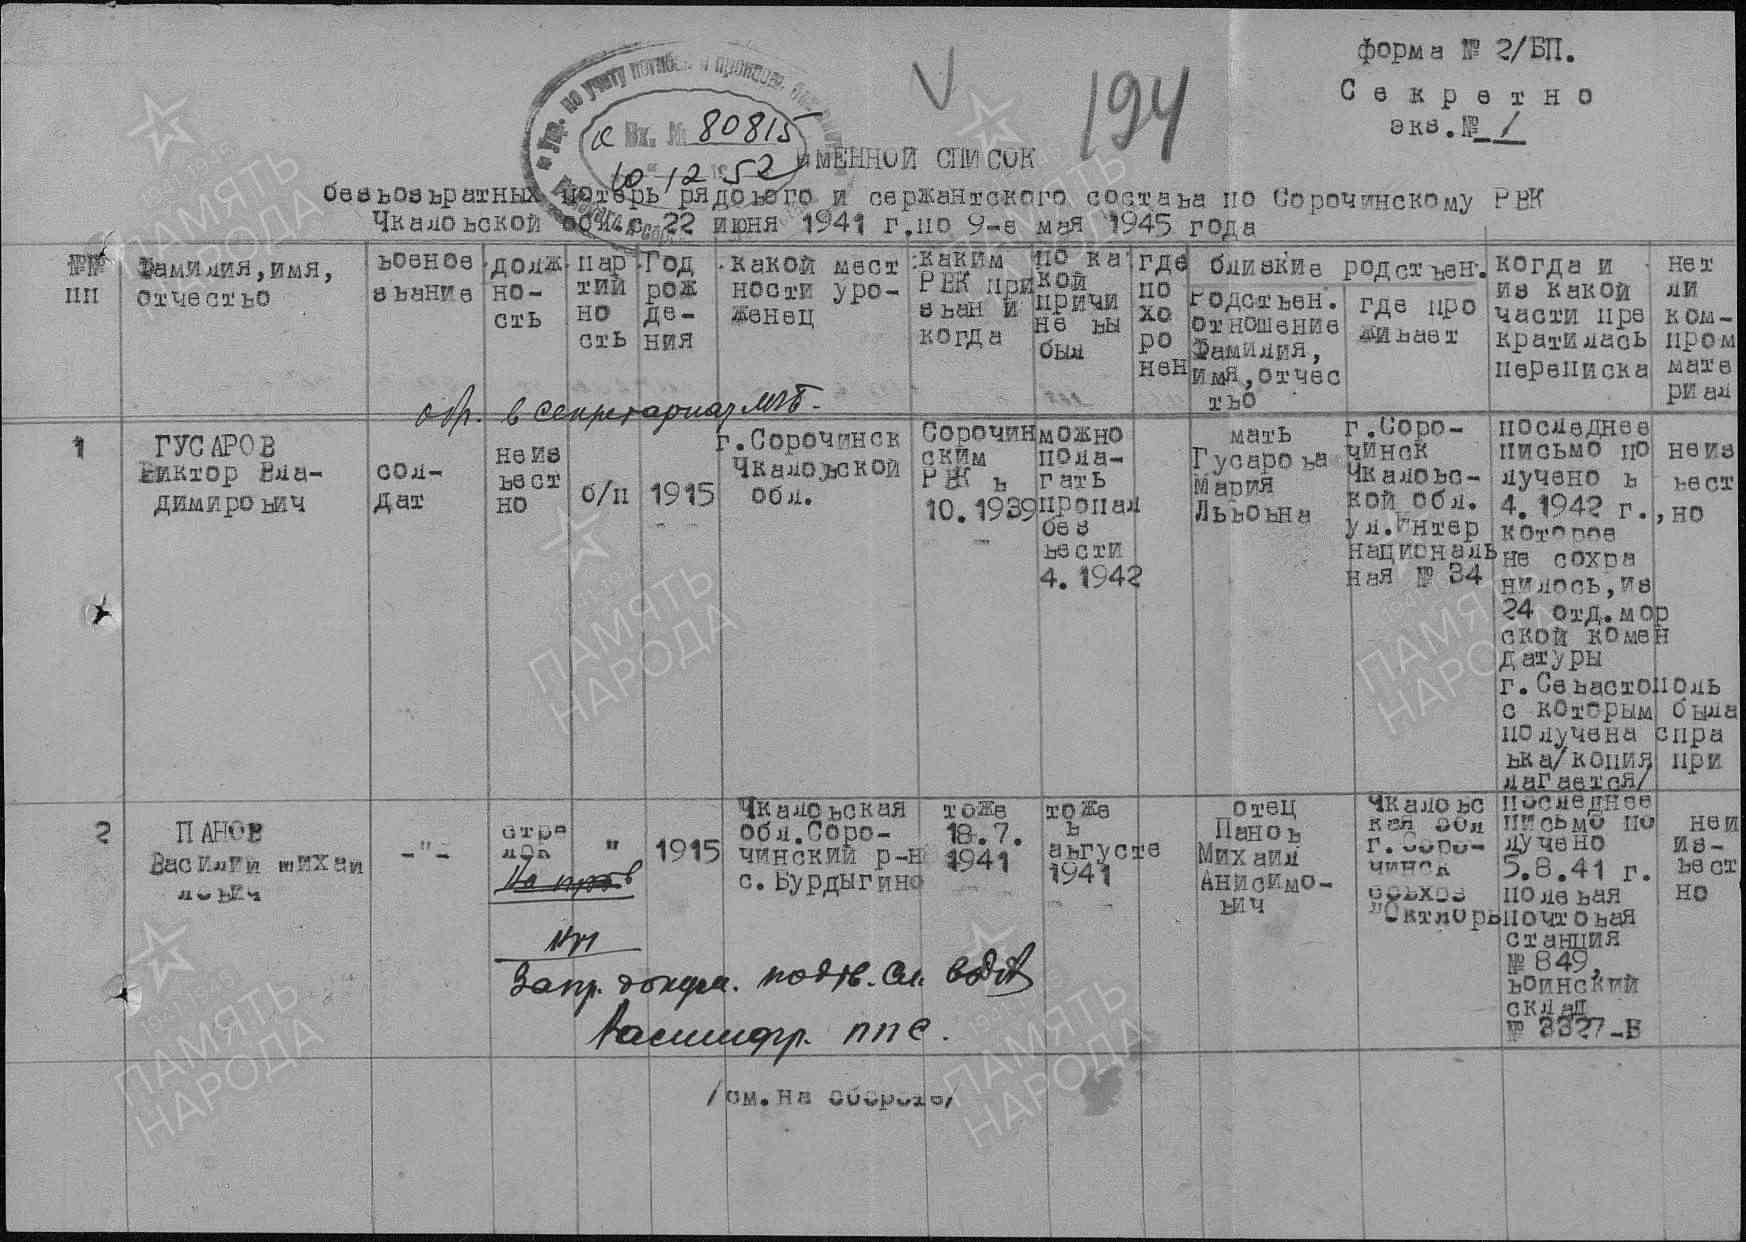 форма № 2/БП.
Секретно
экз.№ 1
194
Вх. № 80815
10 12 1952
ИМЕННОЙ СПИСОК
безвозвратных потерь рядового и сержантского состава по Сорочинскому РВК
Чкаловской обл. с 22 июня 1941 г.по 9-е мая 1945 года
№№ пп
Фамилия,имя, отчество
военое звание
долж но- сть
пар тий но сть
Год рож де- ния
какой мест ности уро- женец
каким РВК при зван и когда
по ка кой причи не вы был
где по хо ро нен
близкие родствен.
Родствен. отношение Фамилия, имя,отчес тво
где про живает
когда и из какой части пре кратилась переписка
нет ли ком- пром мате риал
обр. в секретариат МГБ.
1
ГУСАРОВ Виктор Вла- димирович
сол- дат
неиз вест но
б/п
1915
г.Сорочинск Чкаловской обл.
Сорочин ским РВК в 10.1939
можно пола- гать пропал без вести 4.1942
мать Гусарова Мария Львовна
г.Соро- чинск Чкаловс- кой обл. ул.Интер националь ная № 34
последнее письмо по лучено в 4.1942 г., которое не сохра нилось,из 24 отд.мор ской комен датуры г.Севастополь с которым была получена спра вка/копия при лагается/
неиз вест но
2
ПАНОВ Василий Михаи лович
-"-
стре лок
"
1915
Чкаловская обл.Соро- чинский р-н с.Бурдыгино
тоже 18.7. 1941
тоже в августе 1941
отец Панов Михаил Анисимо- вич
Чкаловс кая обл г.Соро- чинск совхоз "Октлорь
последнее письмо по лучено 5.8.41 г. полевая почтовая станция № 849, воинский склад № 3327-Б
неи из- вест но
Запр. докум. подтв. сл. в
Расшифр. ппс.
/см.на обороте/
ПАМЯТЬ НАРОДА
ПАМЯТЬ НАРОДА
ПАМЯТЬ НАРОДА
ПАМЯТЬ НАРОДА
ПАМЯТЬ НАРОДА
ПАМЯТЬ НАРОДА